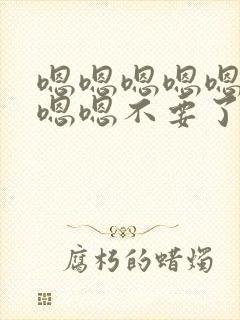 嗯嗯嗯嗯嗯
嗯嗯不要了
腐朽的蜡烛